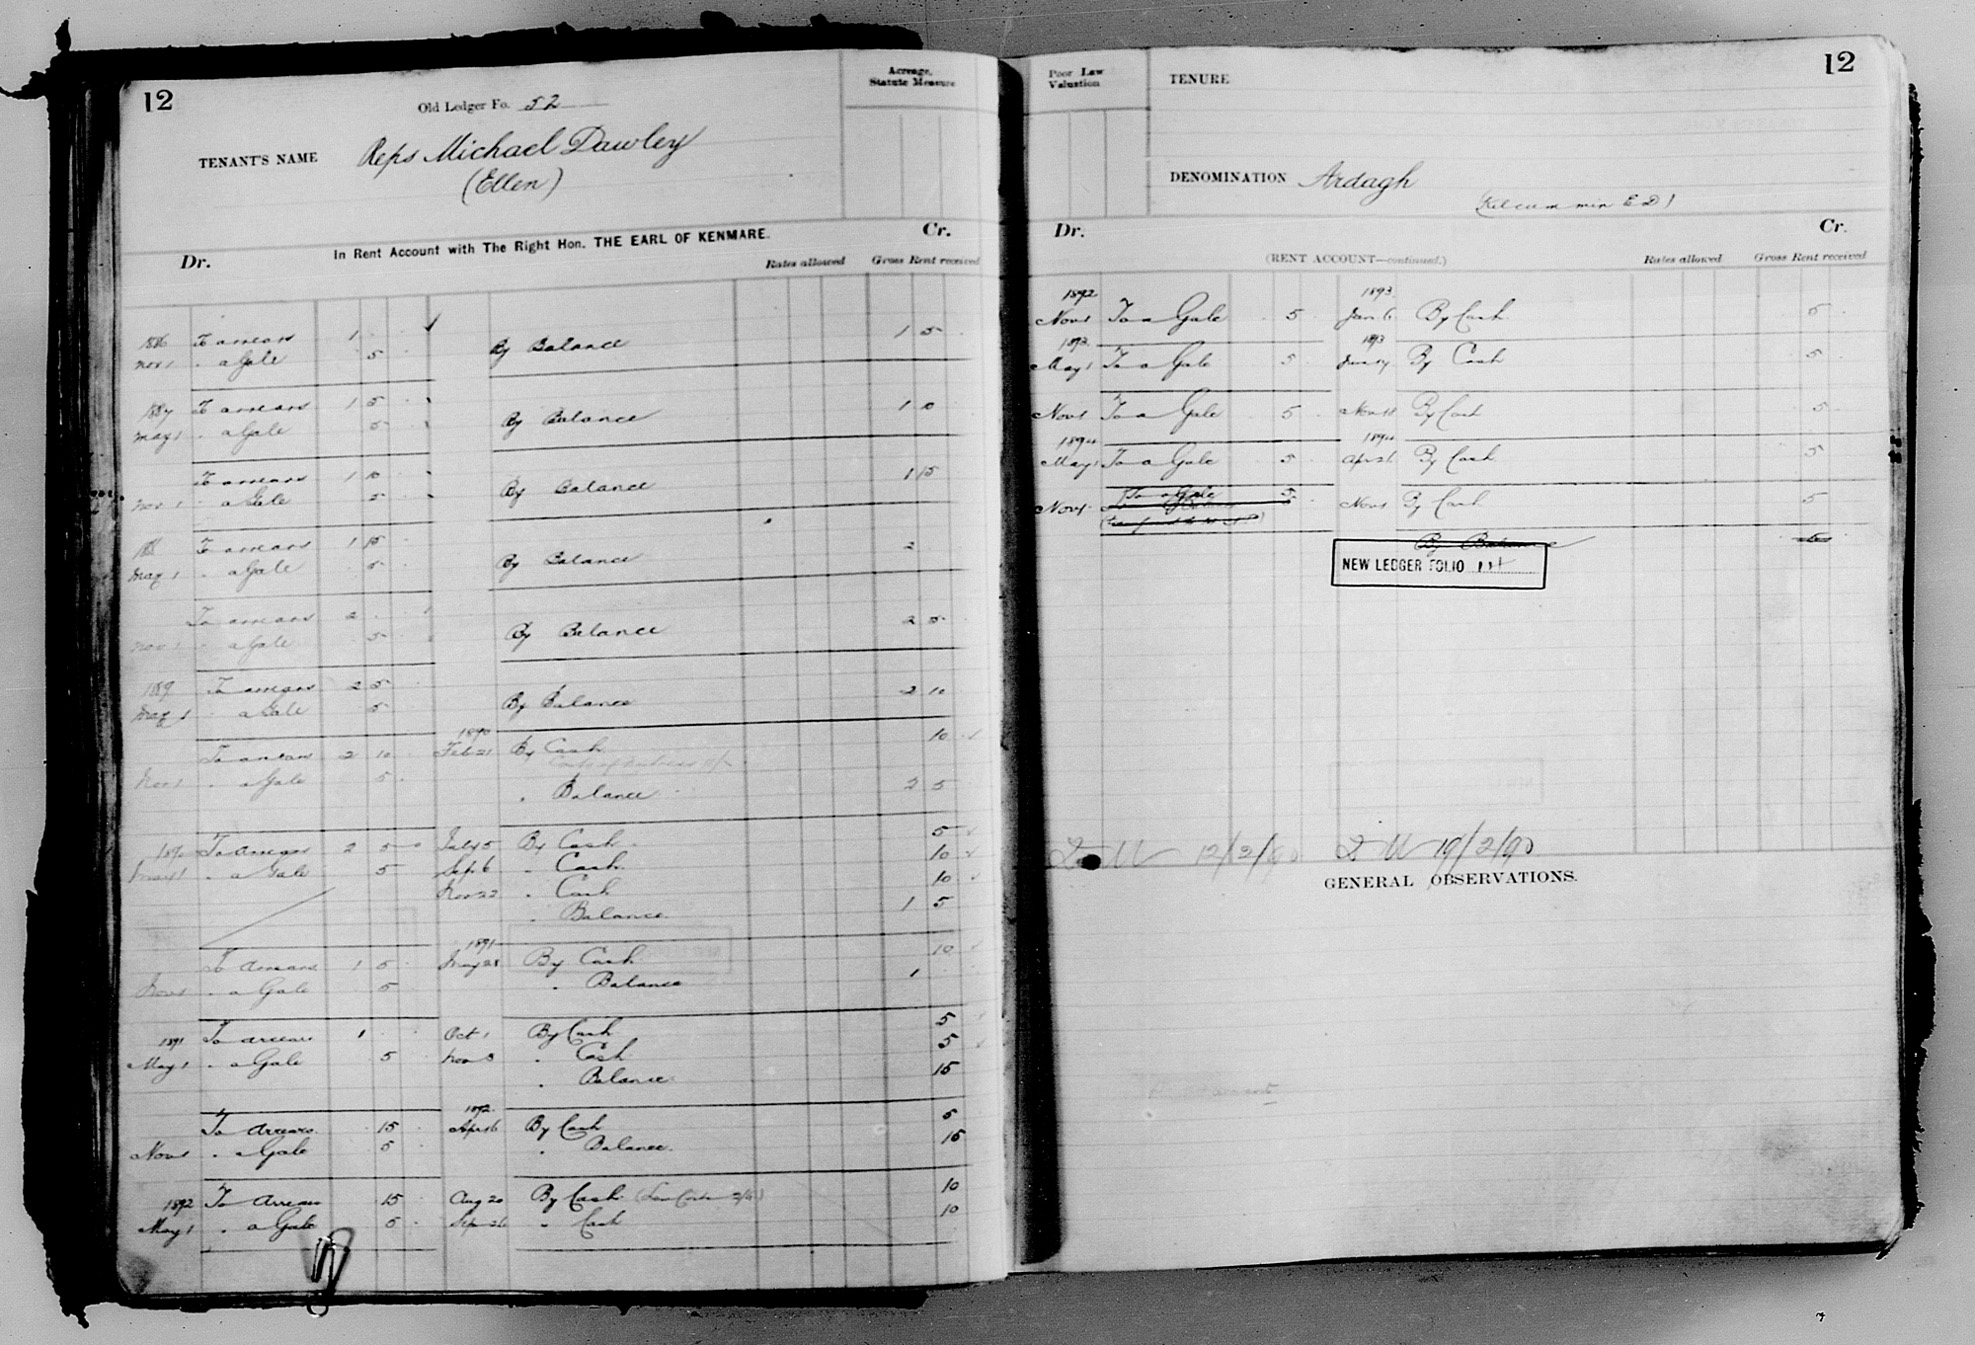 12
Old Ledger Fo. 52
Acreage, Statute Measure
TENANT'S NAME Reps Michael Dawley
(Ellen)
In Rent Account with The Right Hon. THE EARL OF KENMARE.
Dr. Cr.
Rates allowed Gross Rent received
1886 To arrears 1 . .
Nov 1 " a Gale 5 By Balance 1 5
1887 To arrears 1 5
May 1 " a Gale 5 By Balance 1 10
To arrears 1 10
Nov 1 " a Gale 5 By Balance 1 15
188 To arrears 1 15
May 1 " a Gale 5 By Balance 2
To arrears 2
Nov 1 " a Gale 5 By Balance 2 5
1889 To arrears 2 5
May 1 " a Gale 5 By Balance 2 10
1890
To arrears 2 10 Feb 21 By Cash 10
Nov 1 " a Gale 5
" Balance 2 5
1890 To arrears 2 5 July 5 By Cash 5
May 1 " a Gale 5 Sep 6 " Cash 10
Nov 22 " Cash 10
" Balance 1 5
1891
To arrears 1 5 May 28 By Cash 10
Nov 1 " a Gale 5 " Balance 1
1891 To arrears 1 Oct 1 By Cash 5
May 1 " a Gale 5 Nov 8 " Cash 5
" Balance 15
1892
To arrears 15 Apr 16 By Cash 5
Nov 1 " a Gale 5 " Balance 15
1892 To arrears 15 Aug 20 By Cash 10
May 1 " a Gale 5 Sep 26 " Cash 10
12
Poor Law Valuation
TENURE
DENOMINATION Ardagh
(Kilcummin E D)
Dr. Cr.
(RENT ACCOUNT—continued.)
Rates allowed Gross Rent received
1892 1893
Nov 1 To a Gale 5 Jan 6 By Cash 5
1893 1893
May 1 To a Gale 5 June 14 By Cash 5
Nov 1 To a Gale 5 Nov 18 By Cash 5
1894 1894
May 1 To a Gale 5 Apr 21 By Cash 5
Nov 1 To a Gale 5 Nov 1 By Cash 5
By Balance 5
NEW LEDGER FOLIO
12/2/90 19/2/90
GENERAL OBSERVATIONS.